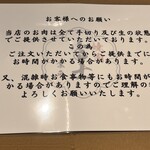 お客様へのお願い
当店のお肉は全て手切り及び生の状態
でご提供させていただいております。
この為
ご注文いただいてからご提供までに
お時間がかかる場合があります。
又、混雑時お食事物等にもお時間が
かかる場合がありますのでご理解の程
よろしくお願いいたします。